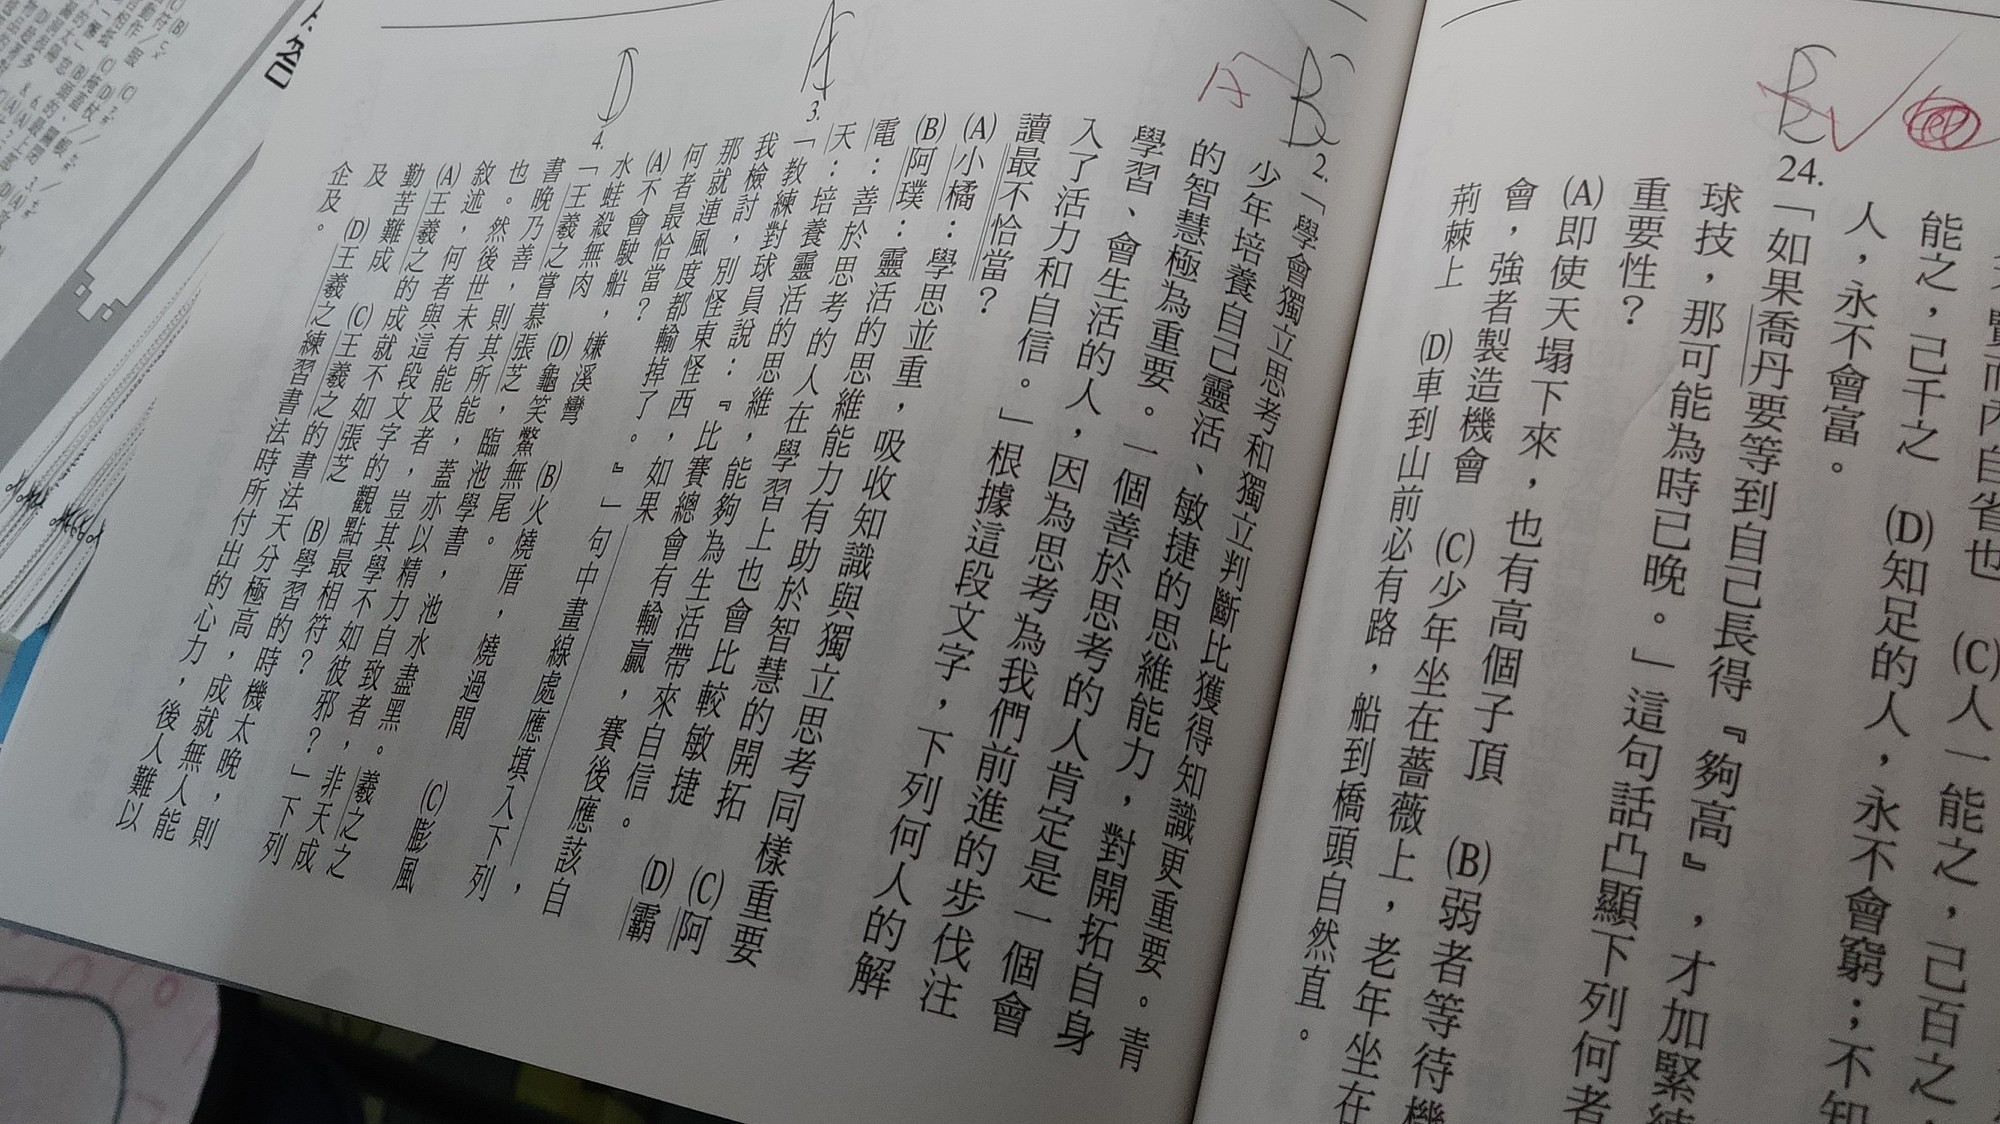 能之，己千之　(D)知足的人，永不會窮；不知
人，永不會富。
24.「如果喬丹要等到自己長得『夠高』，才加緊練
球技，那可能為時已晚。」這句話凸顯下列何者
重要性？
(A)即使天塌下來，也有高個子頂　(B)弱者等待機
會，強者製造機會　(C)少年坐在薔薇上，老年坐在
荊棘上　(D)車到山前必有路，船到橋頭自然直。
B
A
2.「學會獨立思考和獨立判斷比獲得知識更重要。青
少年培養自己靈活、敏捷的思維能力，對開拓自身
的智慧極為重要。一個善於思考的人肯定是一個會
學習、會生活的人，因為思考為我們前進的步伐注
入了活力和自信。」根據這段文字，下列何人的解
讀最不恰當？
(A)小橘：學思並重，吸收知識與獨立思考同樣重要
(B)阿璞：靈活的思維能力有助於智慧的開拓　(C)阿
電：善於思考的人在學習上也會比較敏捷　(D)霸
天：培養靈活的思維，能夠為生活帶來自信。
A
3.「教練對球員說：『比賽總會有輸贏，賽後應該自
我檢討，別怪東怪西，如果　　　　　　，
那就連風度都輸掉了。』」句中畫線處應填入下列
何者最恰當？
(A)不會駛船，嫌溪彎　(B)火燒厝，燒過間　(C)膨風
水蛙殺無肉　(D)龜笑鱉無尾。
D
4.「王羲之嘗慕張芝，臨池學書，池水盡黑。羲之之
書晚乃善，則其所能，蓋亦以精力自致者，非天成
也。然後世未有能及者，豈其學不如彼邪？」下列
敘述，何者與這段文字的觀點最相符？
(A)王羲之的成就不如張芝　(B)學習的時機太晚，則
勤苦難成　(C)王羲之的書法天分極高，成就無人能
及　(D)王羲之練習書法時所付出的心力，後人難以
企及。